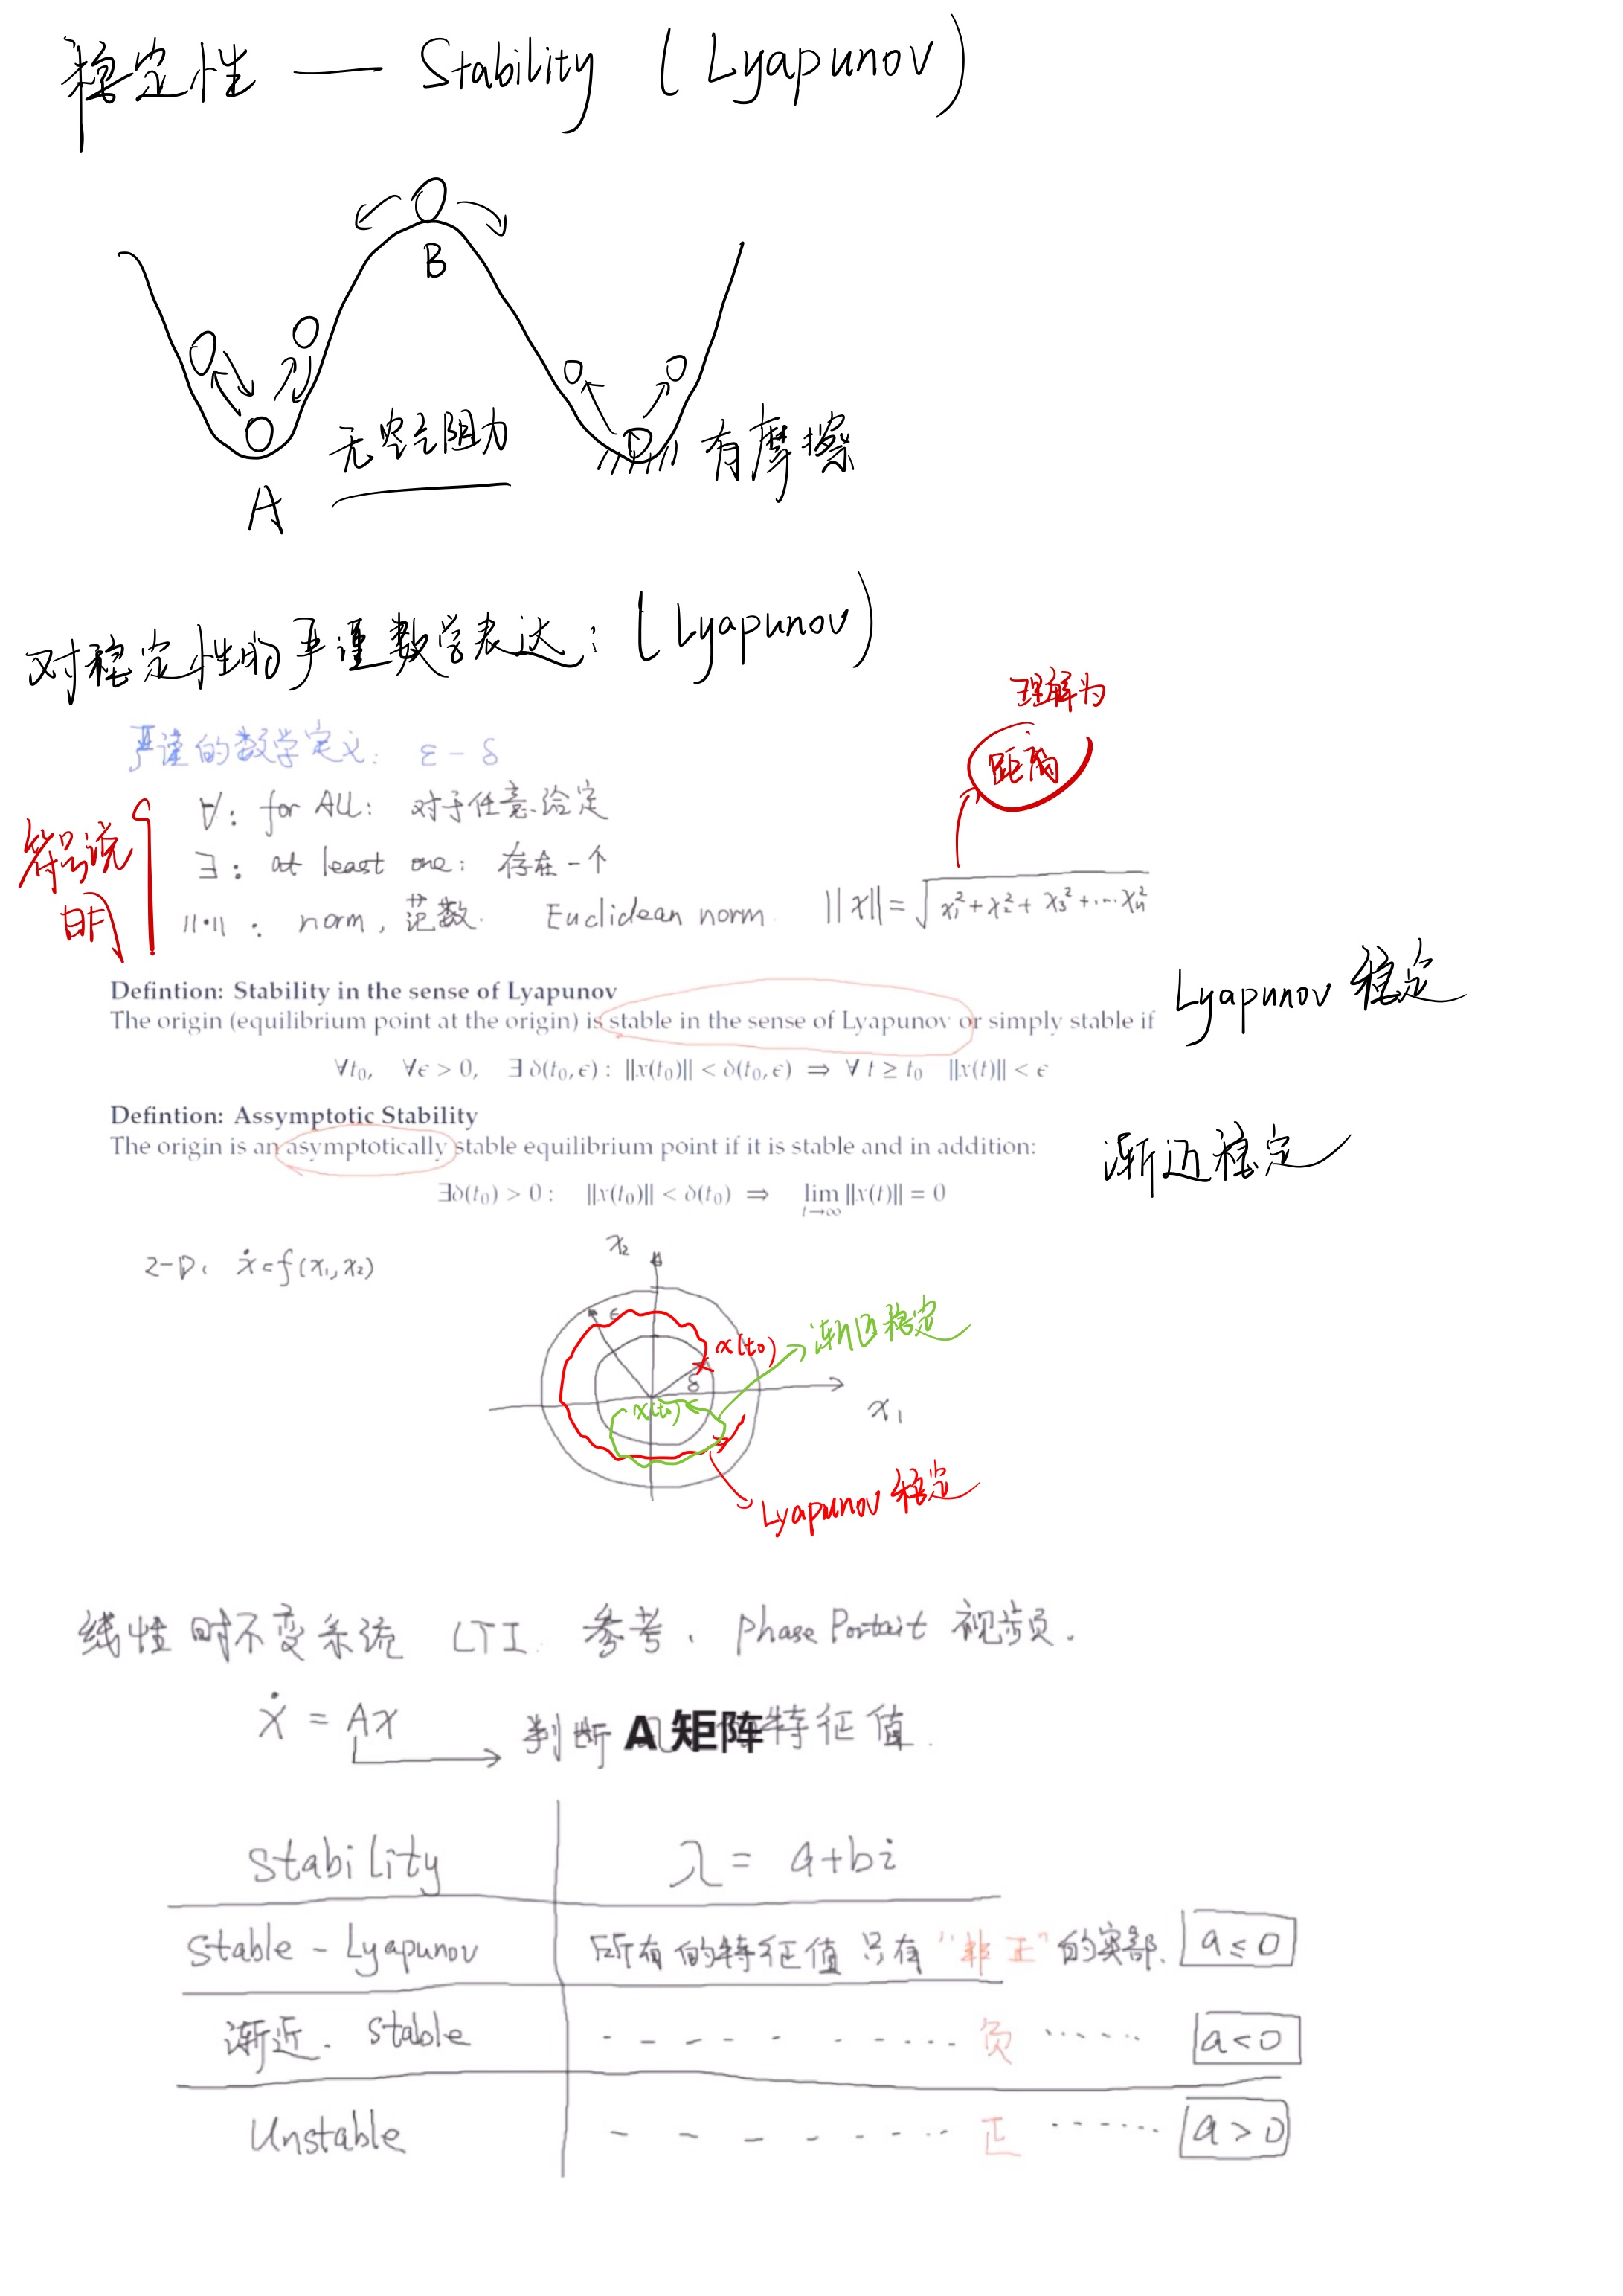 稳定性 — Stability (Lyapunov)
B
无空气阻力
有摩擦
A
对稳定性的严谨数学表达: (Lyapunov)
理解为
距离
严谨的数学定义: ε - δ
符号说明
∀: for ALL: 对于任意给定
∃: at least one: 存在一个
||·||: norm, 范数. Euclidean norm. ||x|| = √(x₁²+x₂²+x₃²+...xₙ²)
Defintion: Stability in the sense of Lyapunov
The origin (equilibrium point at the origin) is stable in the sense of Lyapunov or simply stable if
Lyapunov 稳定
∀t₀, ∀ϵ > 0, ∃ δ(t₀, ϵ) : ||x(t₀)|| < δ(t₀, ϵ) ⇒ ∀ t ≥ t₀ ||x(t)|| < ϵ
Defintion: Assymptotic Stability
The origin is an asymptotically stable equilibrium point if it is stable and in addition:
渐近稳定
∃δ(t₀) > 0 : ||x(t₀)|| < δ(t₀) ⇒ lim t→∞ ||x(t)|| = 0
2-D: ẋ = f(x₁, x₂)
x₂
ε
x(t₀)
渐近稳定
δ
x(t₀)
x₁
Lyapunov 稳定
线性时不变系统 LTI. 参考. Phase Portait 视频.
ẋ = Ax
判断 A 矩阵 特征值.
Stability λ = a+bi
Stable - Lyapunov 所有的特征值只有"非正"的实部. a ≤ 0
渐近. Stable 负 a < 0
Unstable 正 a > 0